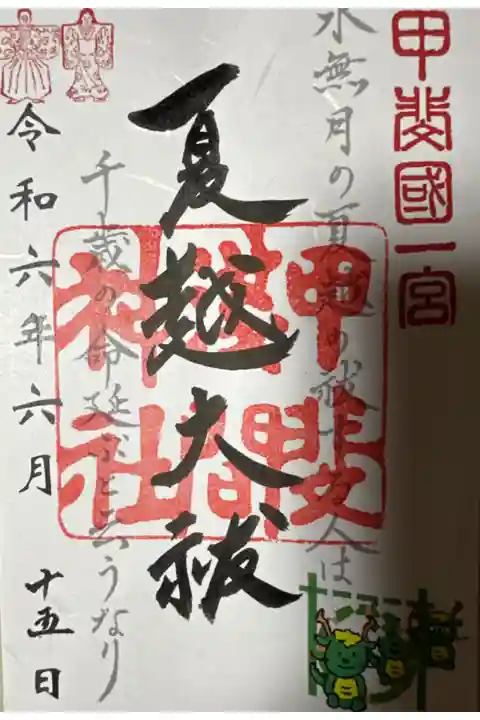 甲斐國一宮
水無月の夏越の祓する人は
夏越大祓
千歳の命延ぶと云うなり
甲斐
淺間
神社
令和六年六月 十五日